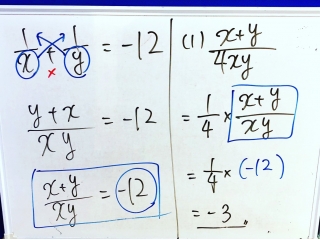 1/x + 1/y = -12
×
y+x/xy = -12
x+y/xy = -12
(1) x+y/4xy
= 1/4 × x+y/xy
= 1/4 × (-12)
= -3.